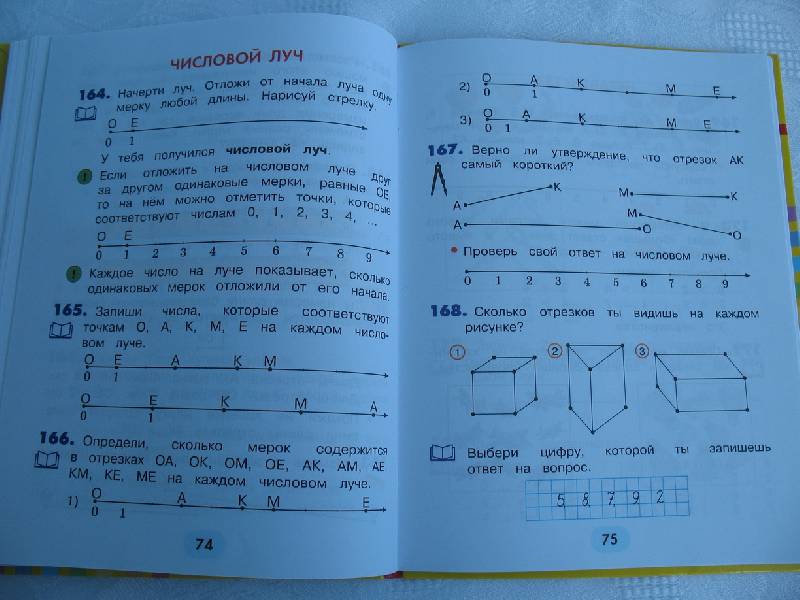 ЧИСЛОВОЙ ЛУЧ
164. Начерти луч. Отложи от начала луча одну
мерку любой длины. Нарисуй стрелку.
О Е
0 1
У тебя получился числовой луч.
! Если отложить на числовом луче друг
за другом одинаковые мерки, равные ОЕ,
то на нём можно отметить точки, которые
соответствуют числам 0, 1, 2, 3, 4, ...
О Е
0 1 2 3 4 5 6 7 8 9
! Каждое число на луче показывает, сколько
одинаковых мерок отложили от его начала.
165. Запиши числа, которые соответствуют
точкам О, А, К, М, Е на каждом число-
вом луче.
О Е А К М
0 1
О Е К М А
0 1
166. Определи, сколько мерок содержится
в отрезках ОА, ОК, ОМ, ОЕ, АК, АМ, АЕ
КМ, КЕ, МЕ на каждом числовом луче.
1) О А К М Е
0 1
74
2) О А К М Е
0 1
3) О А К М Е
0 1
167. Верно ли утверждение, что отрезок АК
самый короткий?
А К М К
А О М О
• Проверь свой ответ на числовом луче.
0 1 2 3 4 5 6 7 8 9
168. Сколько отрезков ты видишь на каждом
рисунке?
1 2 3
Выбери цифру, которой ты запишешь
ответ на вопрос.
5 8 7 9 2
75